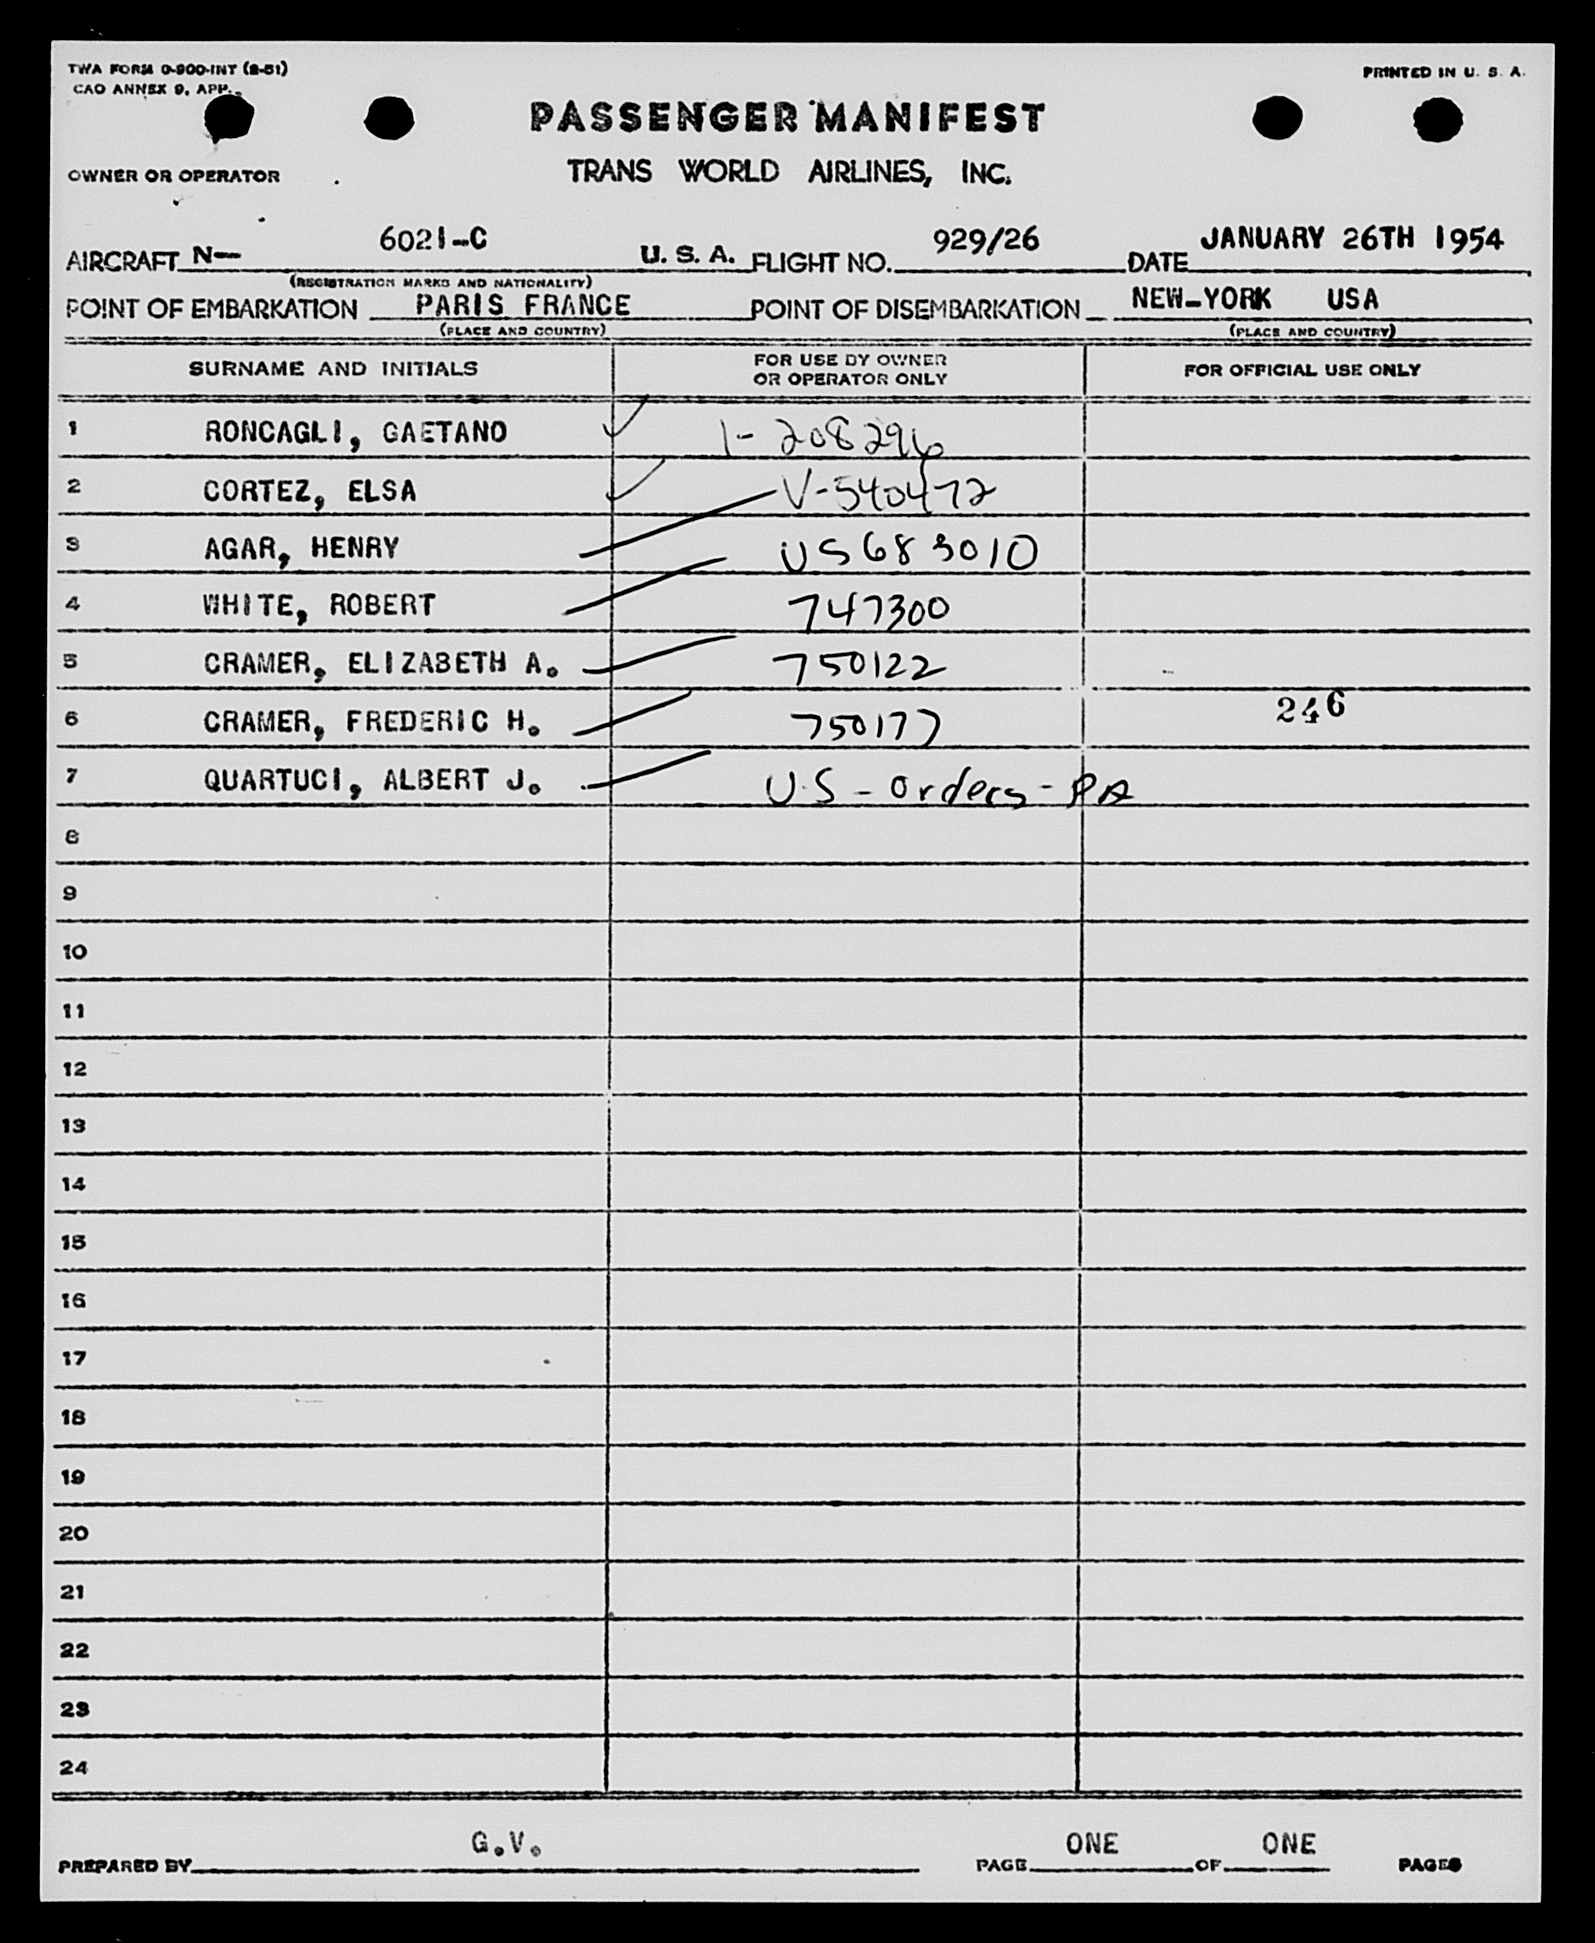 TWA FORM O-900-INT (8-51)
CAO ANNEX 9, APP.
PRINTED IN U. S. A.
PASSENGER MANIFEST
OWNER OR OPERATOR
TRANS WORLD AIRLINES, INC.
AIRCRAFT N- 6021-C U. S. A. FLIGHT NO. 929/26 DATE JANUARY 26TH 1954
(REGISTRATION MARKS AND NATIONALITY)
POINT OF EMBARKATION PARIS FRANCE POINT OF DISEMBARKATION NEW-YORK USA
(PLACE AND COUNTRY) (PLACE AND COUNTRY)
SURNAME AND INITIALS FOR USE BY OWNER OR OPERATOR ONLY FOR OFFICIAL USE ONLY
1 RONCAGLI, GAETANO 1-208296
2 CORTEZ, ELSA V-540472
3 AGAR, HENRY US683010
4 WHITE, ROBERT 747300
5 CRAMER, ELIZABETH A. 750122
6 CRAMER, FREDERIC H. 750177 246
7 QUARTUCI, ALBERT J. U.S - Orders - PA
8
9
10
11
12
13
14
15
16
17
18
19
20
21
22
23
24
PREPARED BY G.V. PAGE ONE OF ONE PAGES